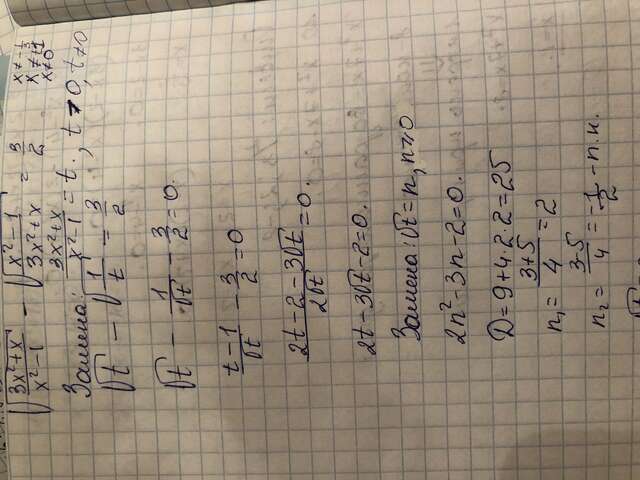 √(3x²+x)/(x²-1) - √(x²-1)/(3x²+x) = 3/2
x ≠ -1
x ≠ 1
x ≠ 0
Замена: (3x²+x)/(x²-1) = t., t > 0, t ≠ 0
√t - √1/t = 3/2
√t - 1/√t - 3/2 = 0.
(t-1)/√t - 3/2 = 0
(2t-2-3√t)/(2√t) = 0.
2t-3√t-2=0.
Замена: √t = n, n ≥ 0
2n²-3n-2=0.
D = 9+4·2·2 = 25
n₁ = (3+5)/4 = 2
n₂ = (3-5)/4 = -1/2 - п.к.